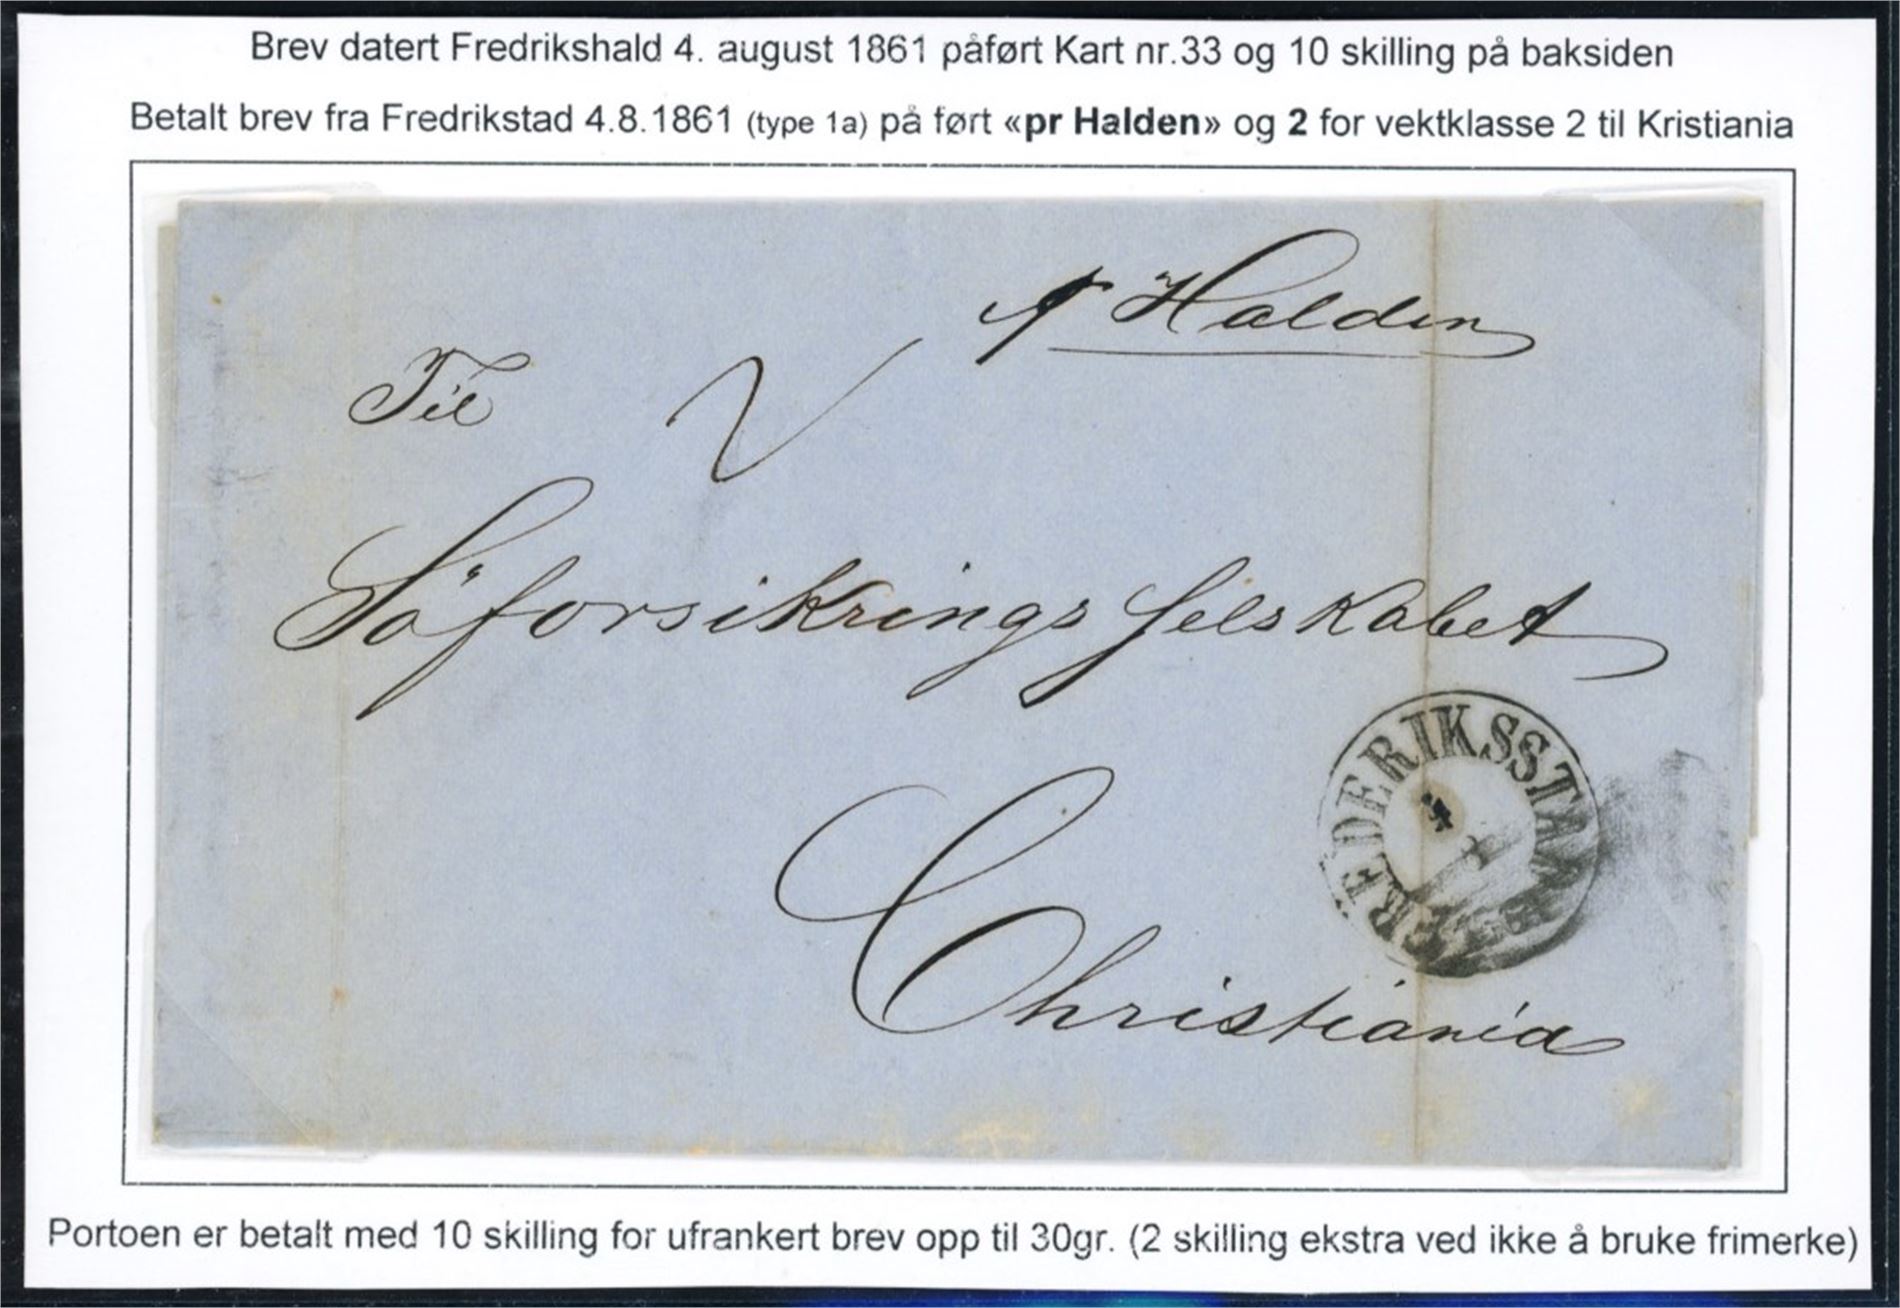 Brev datert Fredrikshald 4. august 1861 påført Kart nr.33 og 10 skilling på baksiden
Betalt brev fra Fredrikstad 4.8.1861 (type 1a) på ført «pr Halden» og 2 for vektklasse 2 til Kristiania
pr Halden
Til 2
Söforsikrings Selskabet
FREDERIKSSTA
4
8
Christiania
Portoen er betalt med 10 skilling for ufrankert brev opp til 30gr. (2 skilling ekstra ved ikke å bruke frimerke)